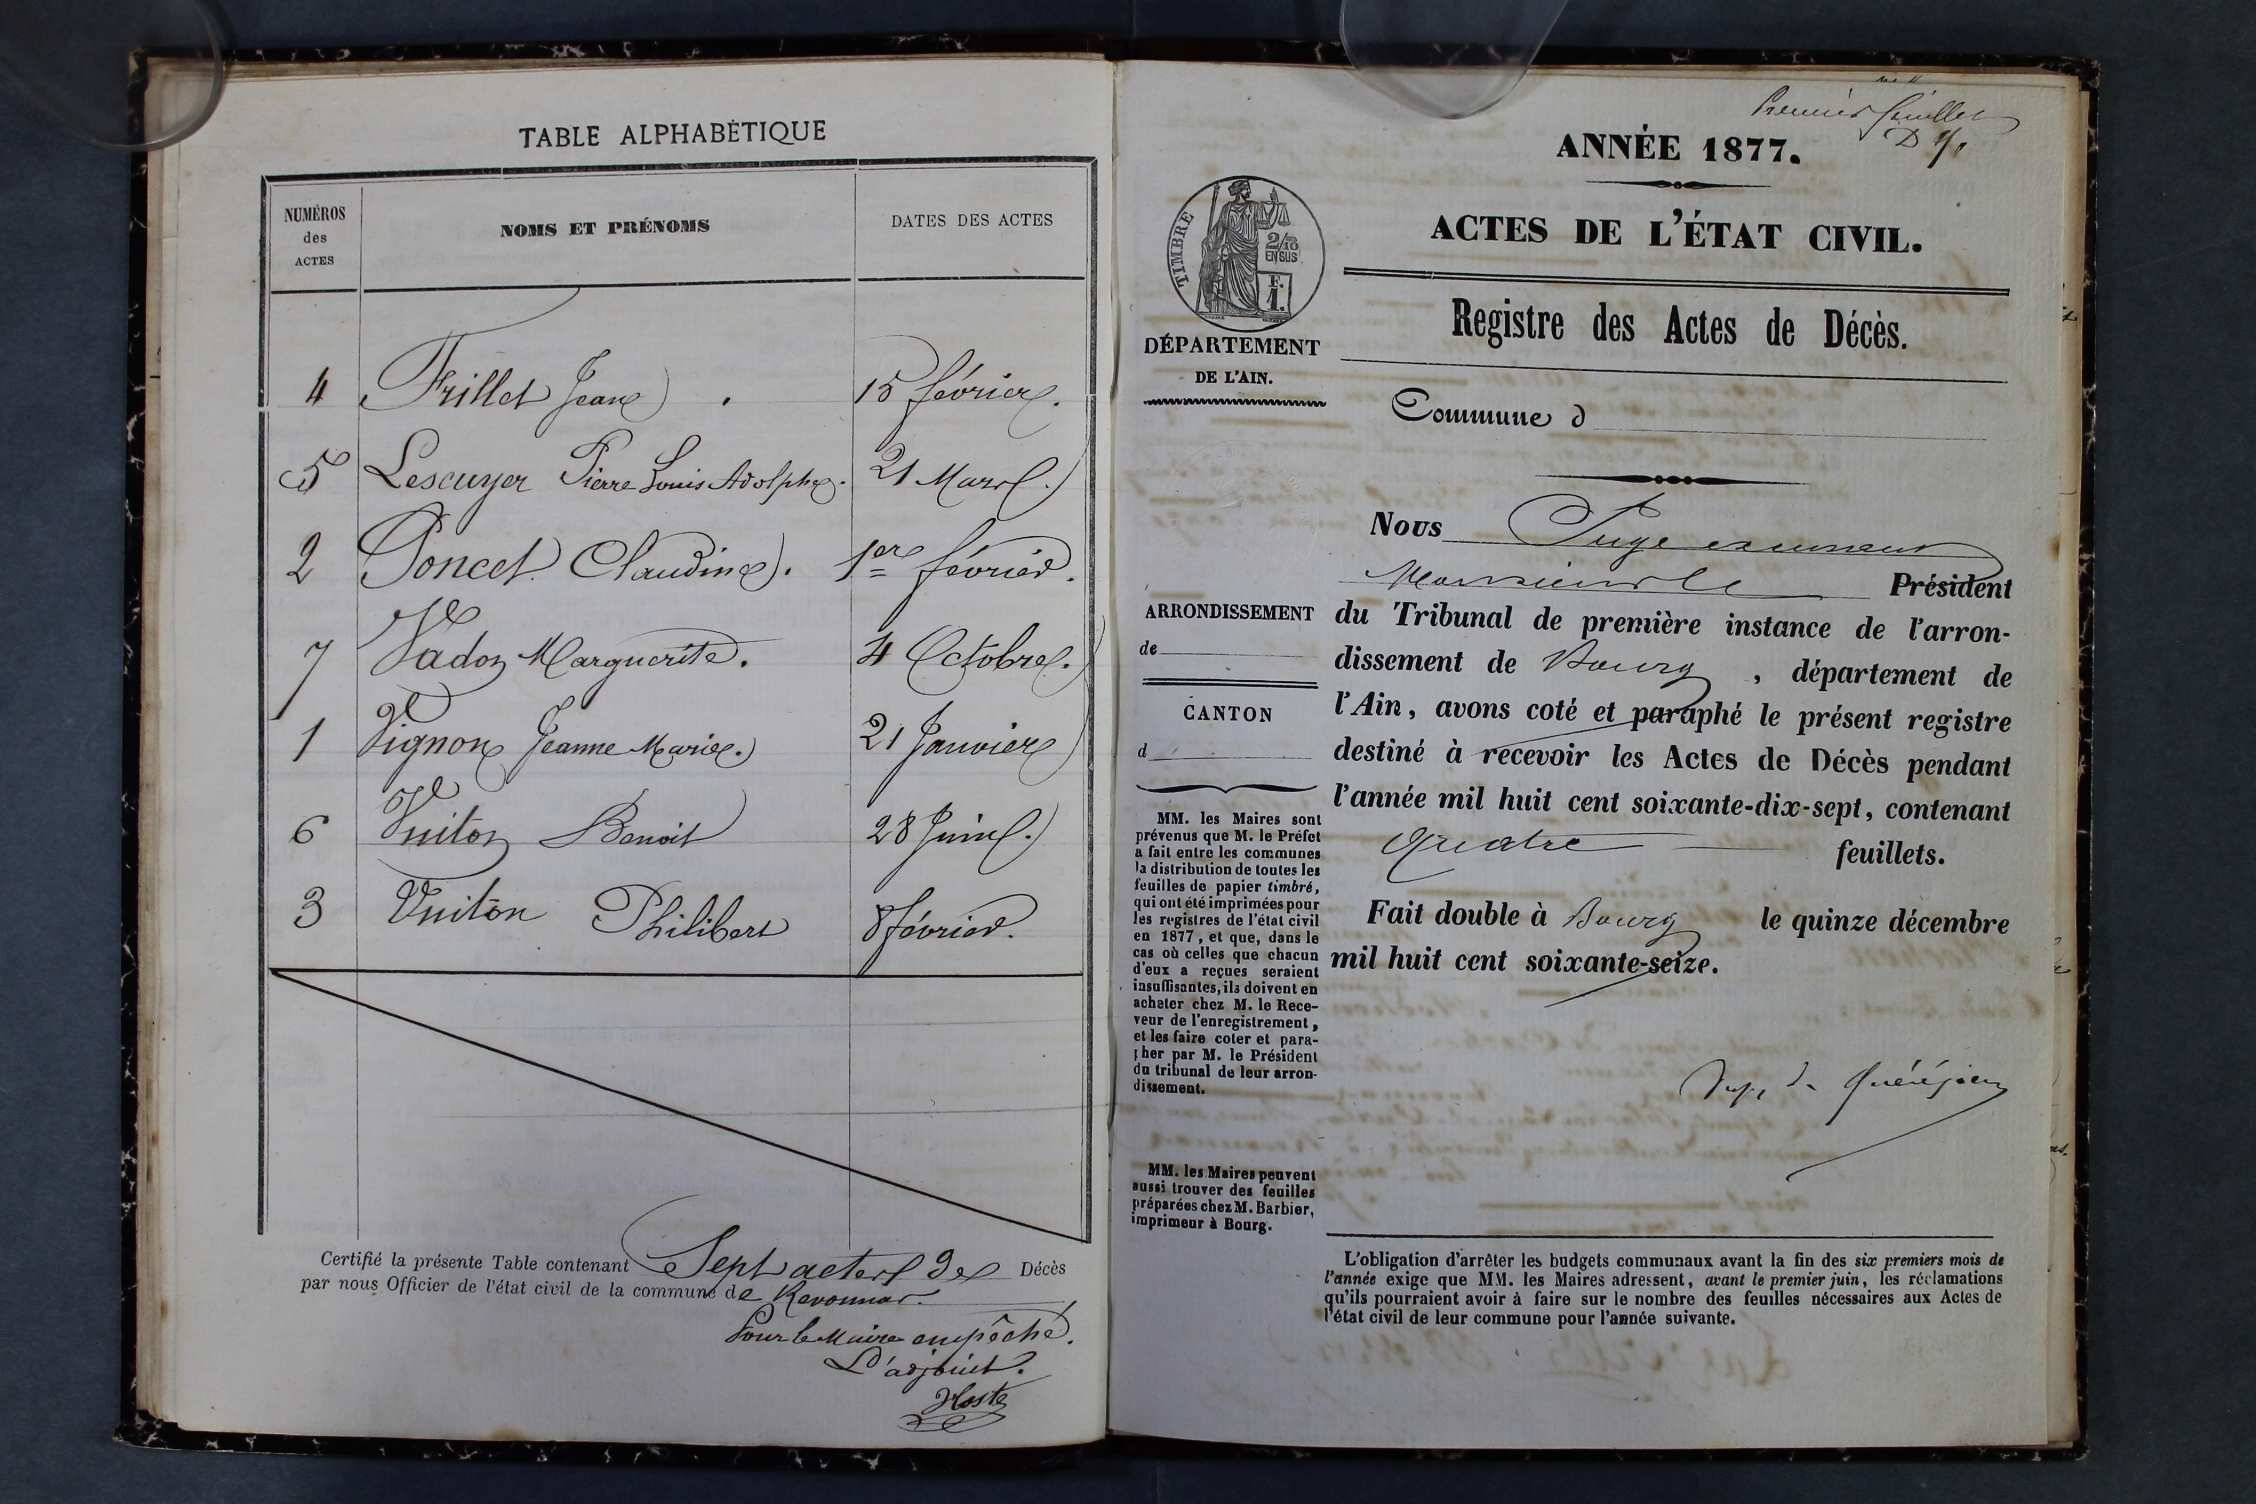 TABLE ALPHABÉTIQUE
NUMÉROS des ACTES
NOMS ET PRÉNOMS
DATES DES ACTES
4 Frillet Jean 15 février.
5 Lescuyer Pierre Louis Adolphe. 21 Mars.
2 Poncet Claudine. 1er février.
7 Vadoz Marguerite. 4 Octobre.
1 Vignon Jeanne Marie. 21 Janvier
6 Vuiton Benoit 28 Juin.
3 Vuiton Philibert 8 février.
Certifié la présente Table contenant Sept actes de Décès
par nous Officier de l'état civil de la commune de Revonnas.
Pour le Maire empêché.
L'adjoint.
Premier feuillet
ANNÉE 1877.
ACTES DE L'ÉTAT CIVIL.
TIMBRE
2/10 EN SUS
F. 1.
DÉPARTEMENT
DE L'AIN.
Registre des Actes de Décès.
Commune d
Nous Juge
Monsieur le Président
ARRONDISSEMENT
de
CANTON
d
du Tribunal de première instance de l'arron-
dissement de Bourg, département de
l'Ain, avons coté et paraphé le présent registre
destiné à recevoir les Actes de Décès pendant
l'année mil huit cent soixante-dix-sept, contenant
Quatre feuillets.
Fait double à Bourg le quinze décembre
mil huit cent soixante-seize.
MM. les Maires sont
prévenus que M. le Préfet
a fait entre les communes
la distribution de toutes les
feuilles de papier timbré,
qui ont été imprimées pour
les registres de l'état civil
en 1877, et que, dans le
cas où celles que chacun
d'eux a reçues seraient
insuffisantes, ils doivent en
acheter chez M. le Rece-
veur de l'enregistrement,
et les faire coter et para-
pher par M. le Président
du tribunal de leur arron-
dissement.
MM. les Maires peuvent
aussi trouver des feuilles
préparées chez M. Barbier,
imprimeur à Bourg.
L'obligation d'arrêter les budgets communaux avant la fin des six premiers mois de
l'année exige que MM. les Maires adressent, avant le premier juin, les réclamations
qu'ils pourraient avoir à faire sur le nombre des feuilles nécessaires aux Actes de
l'état civil de leur commune pour l'année suivante.